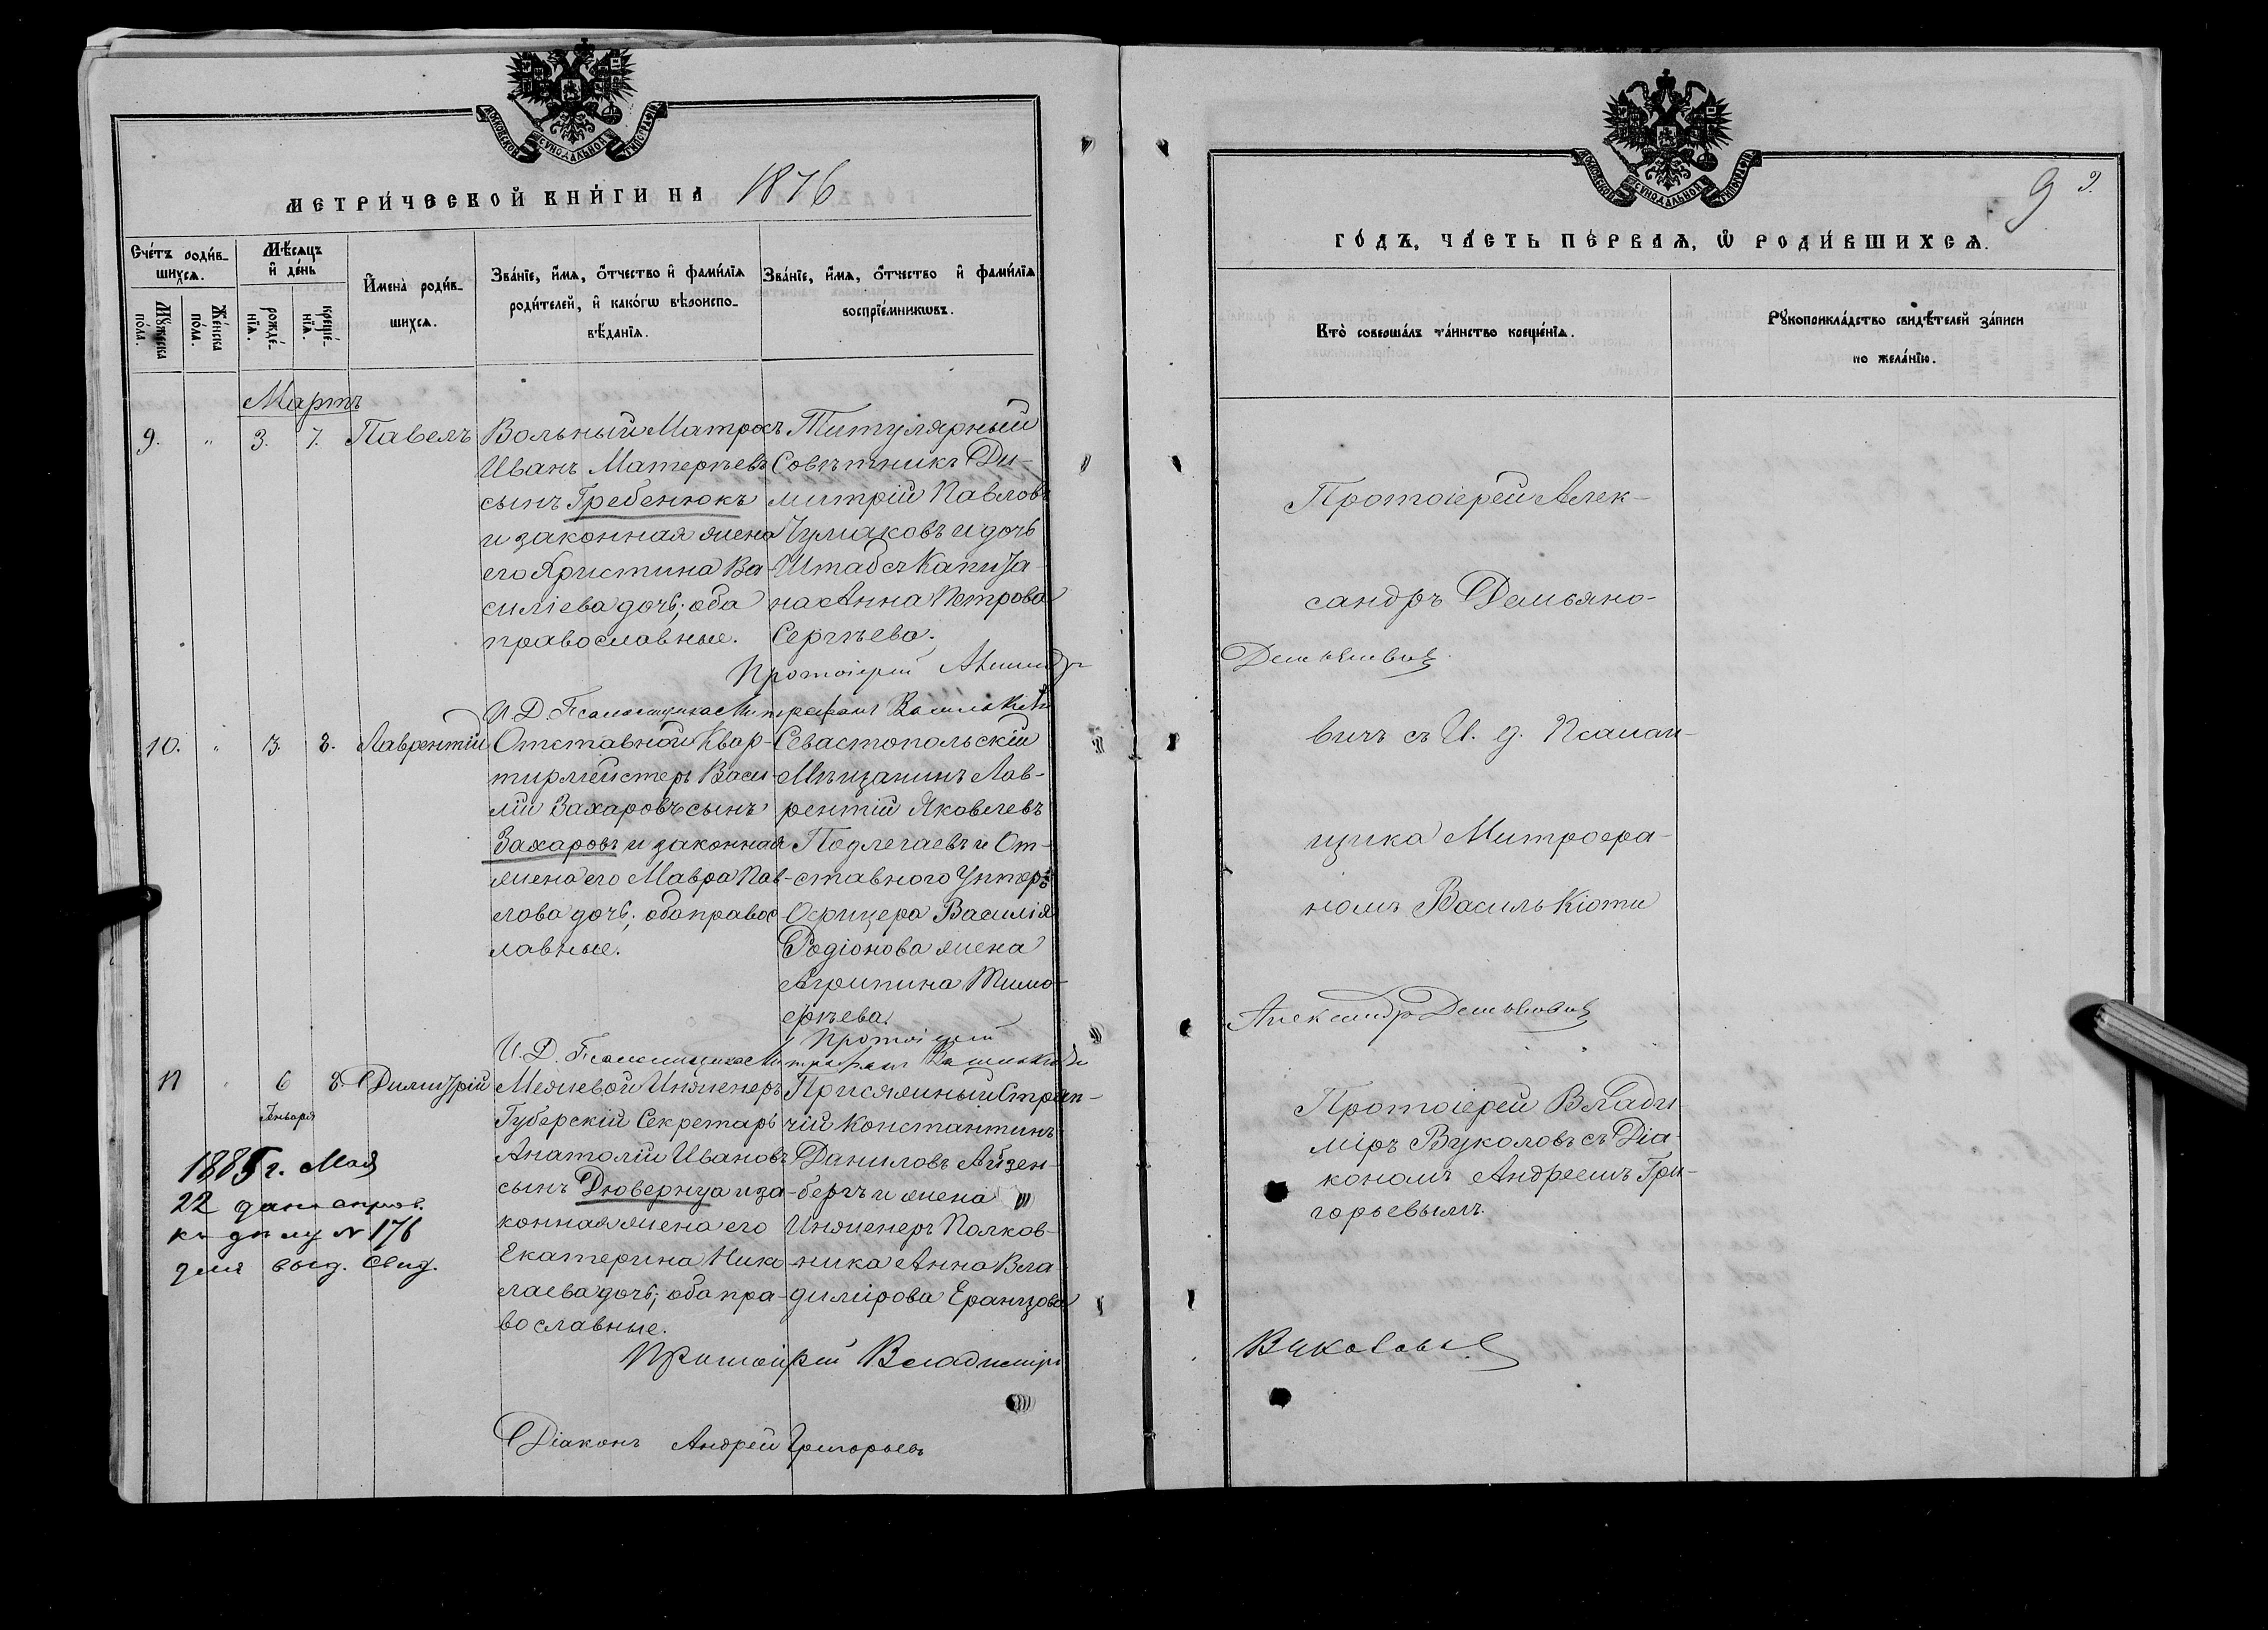 МЕТРИ́ЧЕСКОЙ КНИ́ГИ НА 1876
Сче́тъ роди́в-
шихсѧ.
Мꙋ́жеска
по́ла.
Же́нска
по́ла.
Мѣ́сѧцъ
и҆ де́нь
рожде́-
нїѧ.
креще́-
нїѧ.
И҆мена̀ роди́в-
шихсѧ.
Зва́нїе, и҆́мѧ, ѻ҆́тчество и҆ фами́лїѧ
роди́телей, и҆ како́гѡ вѣроиспо-
вѣ́данїѧ.
Зва́нїе, и҆́мѧ, ѻ҆́тчество и҆ фами́лїѧ
воспрїе́мникѡвъ.
Мартъ
9. " 3. 7. Павелъ
Вольный Матросъ
Иванъ Матерѣевъ
сынъ Гребенюкъ
и законная жена
его Христина Ва-
силіева дочь; оба
православные.
Титулярный
Совѣтникъ Ди-
митрій Павловъ
Чумаковъ и дочь
Штабсъ Капита-
на Анна Петрова
Сергѣева.
Протоіерей Александръ
И. Д. Псаломщика Митрофанъ Василькіоти
10. " 3. 8. Лаврентій
Отставной Квар-
тирмейстеръ Васи-
лій Захаровъ сынъ
Захаровъ и законная
жена его Мавра Пав-
лова дочь; оба правос
лавные.
Севастопольскій
Мѣщанинъ Лав-
рентій Яковлевъ
Подлегаевъ и От-
ставного Унтеръ
Офицера Василія
Родіонова жена
Агрипина Тимо-
фѣева.
Протоіерей
И. Д. Псаломщика Митрофанъ Василькіоти
11 " 6 8. Димитрій
Генваря
Межевой Инженеръ
Губерскій Секретарь
Анатолій Ивановъ
сынъ Дювернуа и за-
конная жена его
Екатерина Нико-
лаева дочь; оба пра-
вославные.
Присяжный Стряп-
чій Константинъ
Даниловъ Айзен-
бергъ и жена
Инженеръ Полков-
ника Анна Вла
димірова Еранцова
1885 г. Мая
22 дана справ.
къ дѣлу № 176
для выд. свид.
Протоіерей Владиміръ
Діаконъ Андрей Григорьевъ
9 9.
ГО́ДЪ, ЧА́СТЬ ПЕ́РВАѦ, Ѽ РОДИ́ВШИХСѦ.
Кто̀ соверша́лъ та́инство креще́нїѧ.
Рꙋкоприкла́дство свидѣ́телей за́писи
по жела́нїю.
Протоіерей Алек-
сандръ Демьяно-
Демьяновичъ
вичъ съ И. д. Псалом-
щика Митрофа-
номъ Василькіоти
Александръ Демьяновичъ
Протоіерей Влади
міръ Вуколовъ съ Діа-
кономъ Андреемъ Гри-
горьевымъ.
Вуколовъ